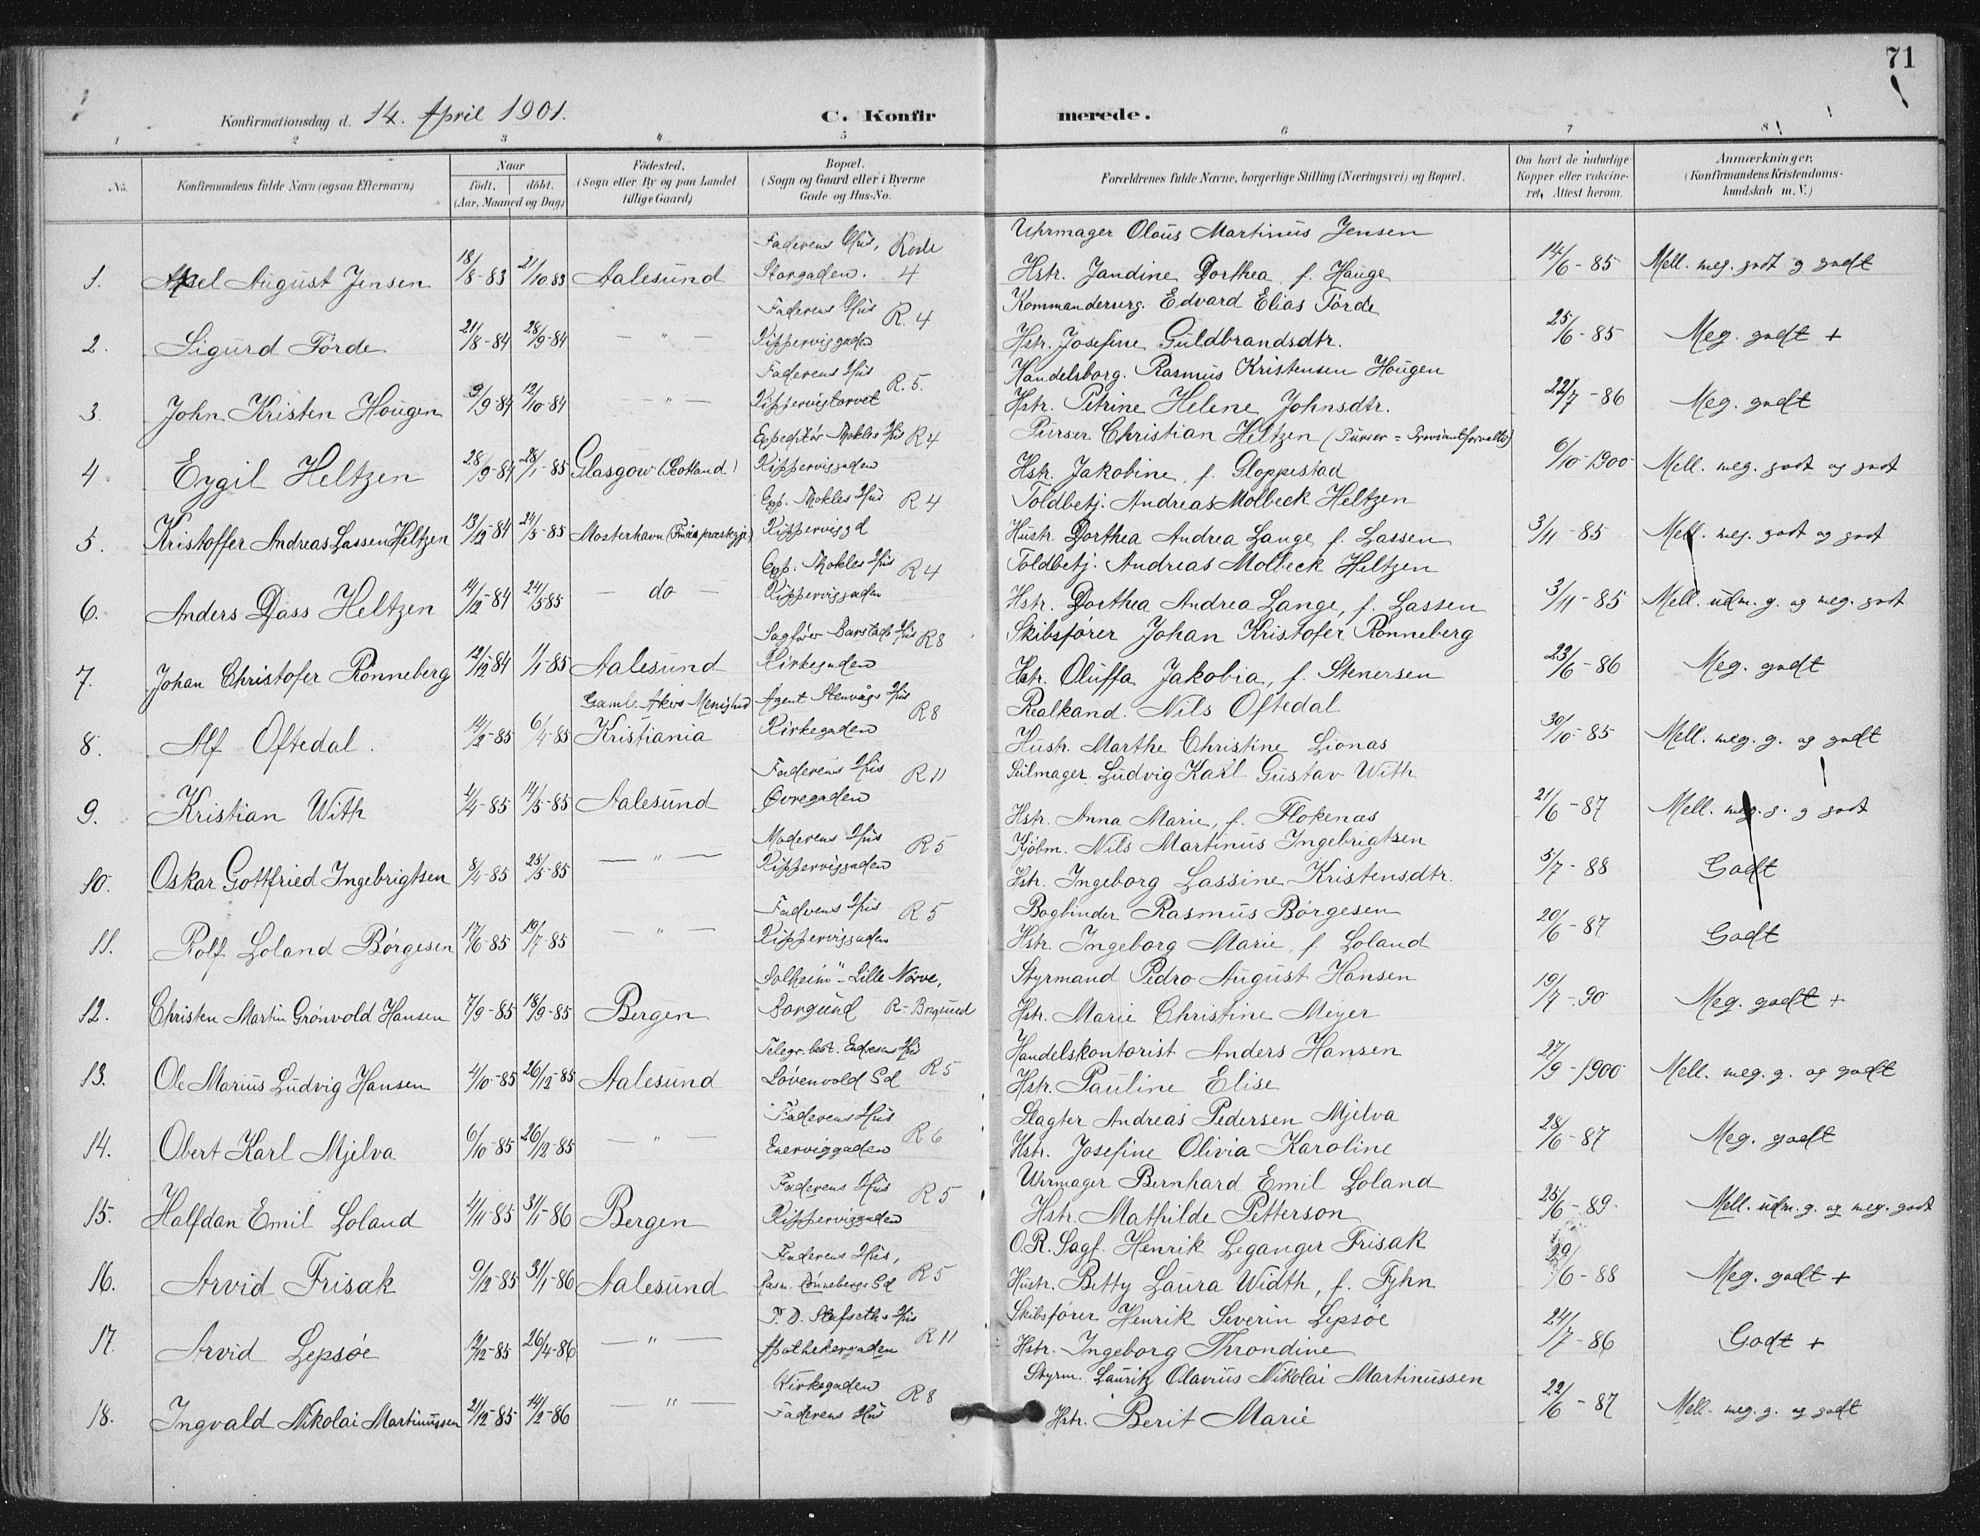 71
Konfirmationsdag d. 14. April 1901.
C. Konfir
merede.
1 2 3 " 5 6 7 8
No.
Konfirmandens fulde Navn (ogsaa Efternavn)
Naar
født. døbt.
(Aar, Maaned og Dag)
Födested.
(Sogn eller By og paa Landet
tillige Gaard)
Bopæl.
(Sogn og Gaard eller i Byerne
Gade og Hus-No.
Forældrenes fulde Navne, borgerlige Stilling (Næringsvei) og Bopæl.
Om havt de naturlige
Kopper eller vakcine-
ret, Attest herom.
Anmærkninger.
(Konfirmandens Kristendoms-
kundskab m. V.)
Faderens Hus, Kreds Uhrmager Olaus Martinus Jensen
1. Axel August Jensen 18/8-83 21/10 83 Aalesund Storgaden. 4 Hstr. Jandine Dorthea f. Hauge 14/6-85 Mell. meg. godt og godt
Faderens Hus R. 4 Kommanderserg. Edvard Elias Förde
2. Sigurd Förde 21/8-84 28/9-84 — " — Kipperviggaden Hstr. Josefine Guldbrandsdtr. 25/6-85 Meg. godt +
Faderens Hus R. 5. Handelsborg. Rasmus Kristensen Hougen
3. John Kristen Hougen 9/9-84 12/10-84 — " — Kippervigtorvet Hstr. Petrine Helene Johnsdtr. 22/7-86 Meg. godt
Expeditør Mokles Hus R 4 Purser Christian Heltzen (Purser = Proviantforvalter)
4. Eygil Heltzen 28/9-84 28/1-85 Glasgow (Scotland) Kipperviggaden Hstr. Jakobine, f. Gloppestad 6/10-1900 Mell. meg. godt og godt
Exp. Mokles Hus R 4 Toldbetj. Andreas Molbeck Heltzen
5. Kristoffer Andreas Lassen Heltzen 13/12-84 24/5-85 Mosterhavn (Finaas præstegj.) Kipperviggd Hustr. Dorthea Andrea Lange f. Lassen 3/11-85 Mell. meg. godt og godt
Exp. Mokles Hus R 4 Toldbetj. Andreas Molbeck Heltzen
6. Anders Dass Heltzen 14/12-84 24/5 85 — do — Kipperviggaden Hstr. Dorthea Andrea Lange, f. Lassen 3/11-85 Mell. udm. g. og meg. godt
Sagfører Barstads Hus R 8 Skibsfører Johan Kristofer Rönneberg
7. Johan Christofer Rönneberg 12/12 84 1/1-85 Aalesund Kirkegaden Hstr. Oluffa Jakobia, f. Stenersen 23/6-86 Meg. godt
Gamle Akers Menighed Agent Stenvågs Hus R 8 Realkand. Nils Oftedal
8. Alf Oftedal. 14/2-85 6/4-85 Kristiania Kirkegaden Hustr. Marthe Christine Lionas 30/10-85 Mell. meg. g. og godt
Faderens Hus R 11 Seilmager Ludvig Karl Gustav With
9. Kristian With 2/4-85 14/5-85 Aalesund Øvregaden Hstr. Anna Marie, f. Flokenæs 21/6-87 Mell. meg. g. og godt
Moderens Hus R 5 Kjöbm. Nils Martinus Ingebrigtsen
10. Oskar Gottfried Ingebrigtsen 8/4-85 25/5-85 — " — Kipperviggaden Hstr. Ingeborg Lassine Kristensdtr. 5/7-88 Godt
Faderens Hus R 5 Bogbinder Rasmus Börgesen
11. Rolf Loland Börgesen 17/6-85 19/7-85 — " — Kipperviggaden Hstr. Ingeborg Marie, f. Loland 20/6-87 Godt
"Solheim" - Lille Nørve, Styrmand Pedro August Hansen
12. Christen Martin Grönvold Hansen 7/9-85 18/9-85 Bergen Borgund R-Borgund Hstr. Marie Christine Meyer 19/7-90 Meg. godt +
Telegr. best. Endresens Hus R 5 Handelskontorist Anders Hansen
13. Ole Marius Ludvig Hansen 4/10-85 26/12-85 Aalesund Løvenvold Gd Hstr. Pauline Elise 27/9-1900 Mell. meg. g. og godt
Faderens Hus R 6 Slagter Andreas Pedersen Mjelva
14. Obert Karl Mjelva 6/10-85 26/12-85 — " — Enerviggaden Hstr. Josefine Olivia Karoline 28/6-87 Meg. godt
Faderens Hus R 5 Uhrmager Bernhard Emil Loland
15. Halfdan Emil Loland 4/11-85 31/1-86 Bergen Kipperviggaden Hstr. Mathilde Petterson 25/6-89. Mell. udm. g. og meg. godt
Faderens Hus, R 5 O.R. Sagf. Henrik Leganger Frisak
16. Arvid Frisak 9/12-85 31/1-86 Aalesund Rasm. Rønnebergs Gd Hustr. Betty Laura Width, f. Fyhn 29/6-88 Meg. godt +
P. D. Stafseths Hus R 11 Skibsfører Henrik Severin Lepsöe
17. Arvid Lepsöe 12/12-85 26/4-86 — " — Apothekergaden Hstr. Ingeborg Throndine 24/7-86 Godt +
Kirkegaden R 8 Styrm. Lauritz Olavius Nikolai Martinussen
18. Ingvald Nikolai Martinussen 21/12-85 14/2-86 — " — Faderens Hus Hstr. Berit Marie 22/6-87 Mell. meg. g. og godt